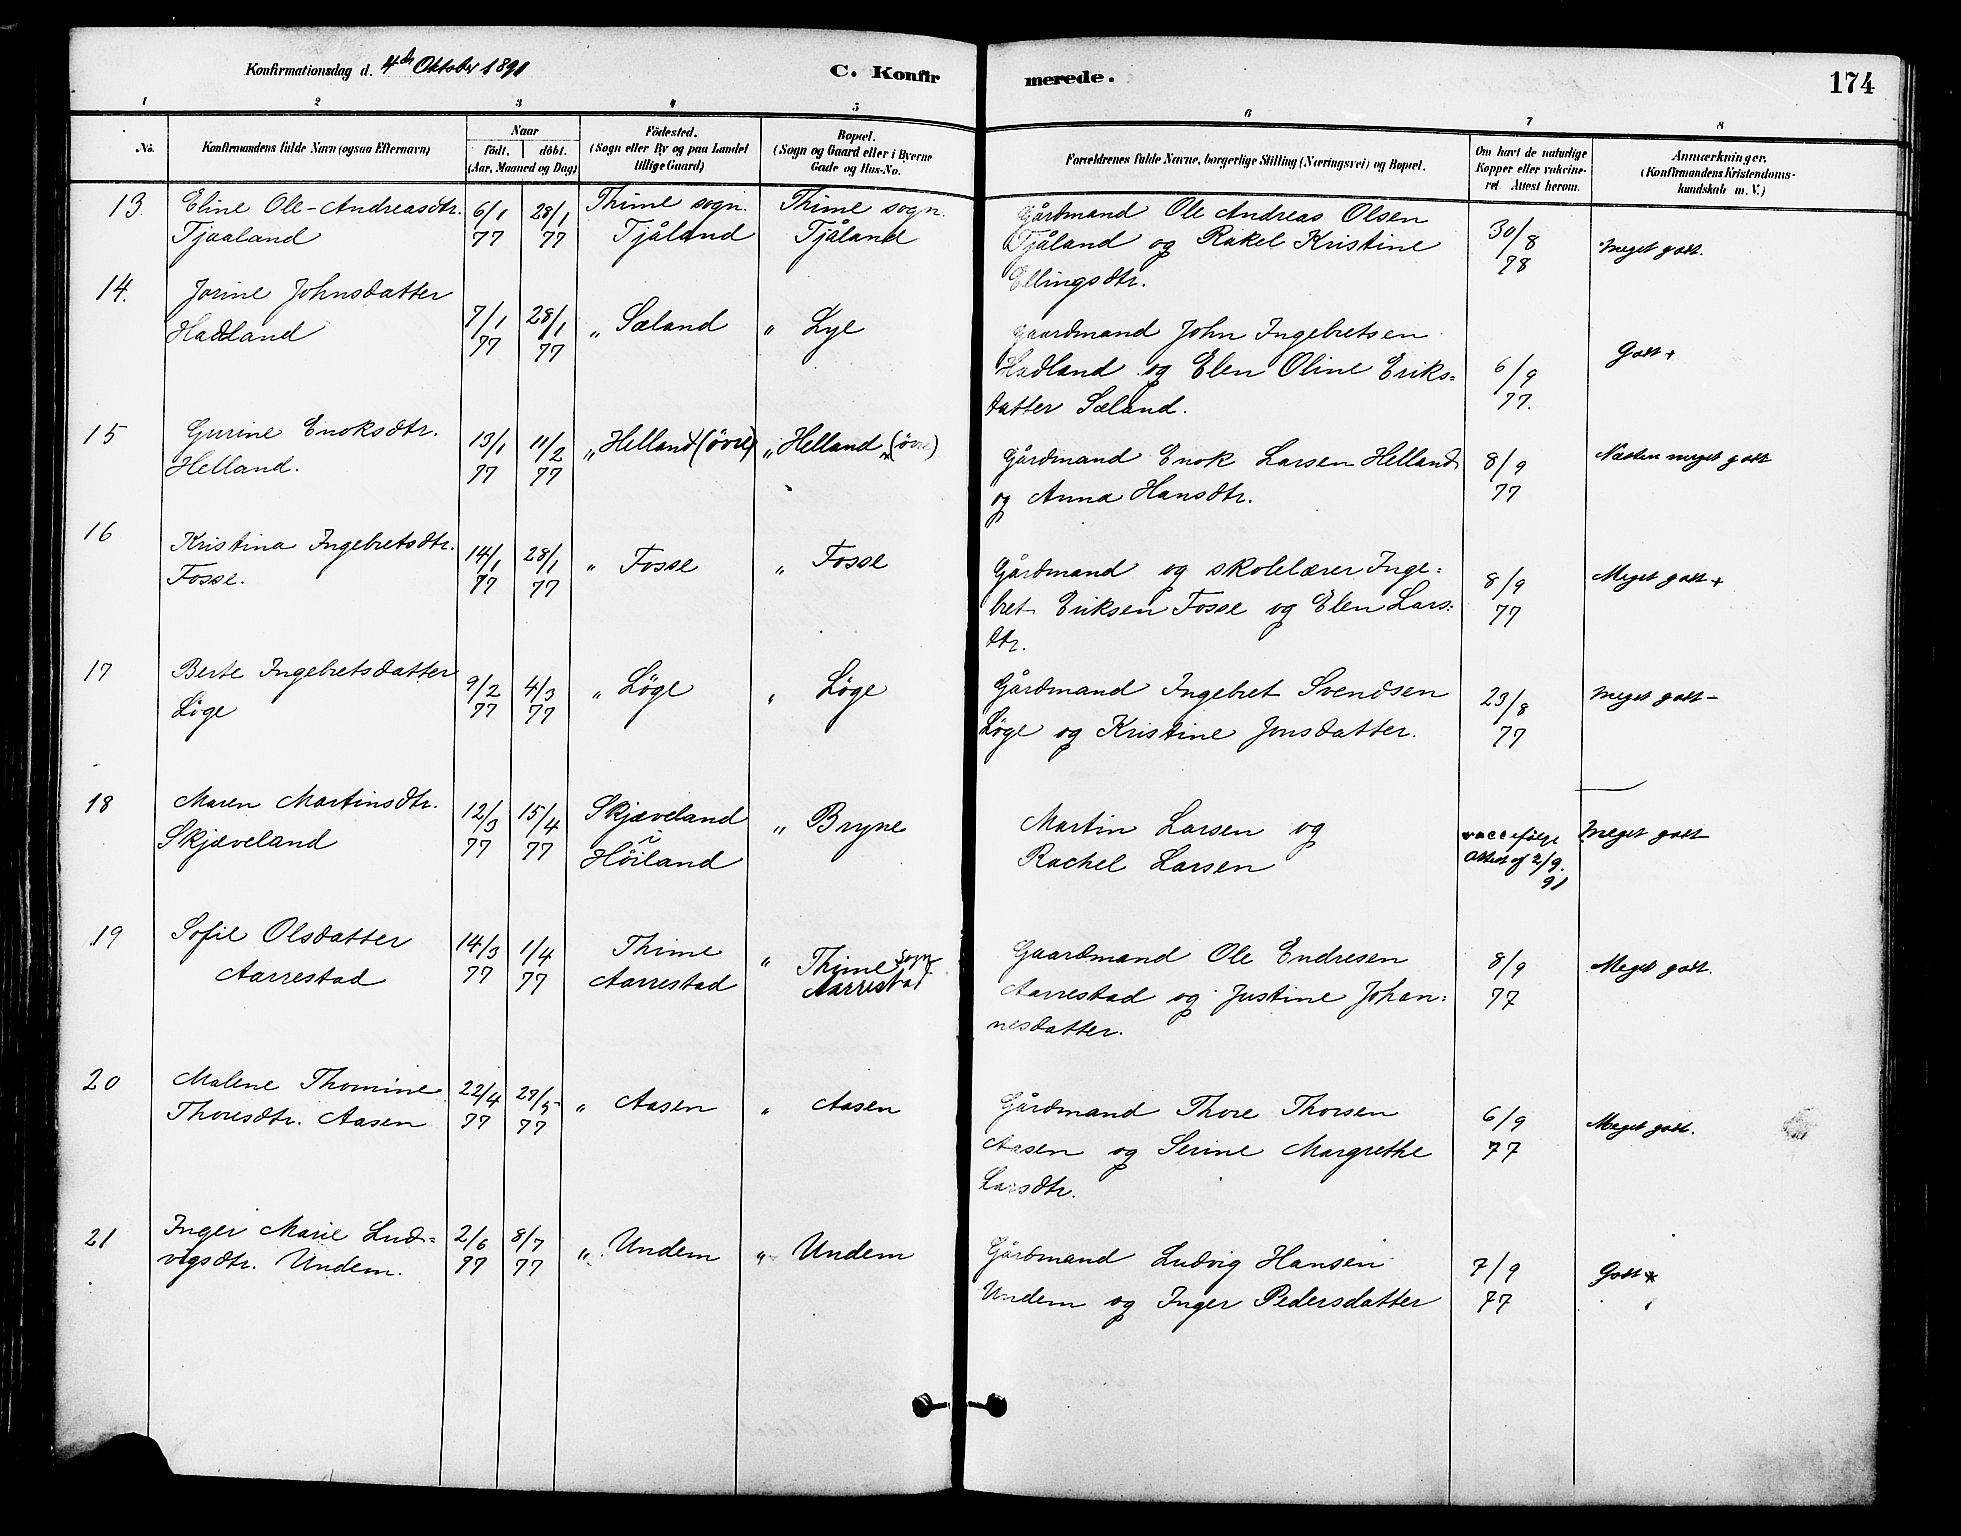 Konfirmationsdag d. 4de Oktober 1891
C. Konfirmerede.
174
1 2 3 4 5 6 7 8
No.
Konfirmandens fulde Navn (ogsaa Efternavn)
Naar
födt. döbt.
(Aar, Maaned og Dag)
Födested.
(Sogn eller By og paa Landet
tillige Gaard)
Bopæl.
(Sogn og Gaard eller i Byerne
Gade og Hus-No.
Forældrenes fulde Navne, borgerlige Stilling (Næringsvei) og Bopæl.
Om havt de naturlige
Kopper eller vakcine-
ret Attest herom.
Anmærkninger.
(Konfirmandens Kristendoms-
kundskab m. V.)
13. Eline Ole-Andreasdtr. 6/1 28/1 Thime sogn. Thime sogn. Gårdmand Ole Andreas Olsen 30/8
Tjaaland 77 77 Tjåland Tjåland Tjåland og Rakel Kristine 78 Meget godt.
Ellingsdtr.
14. Jorine Johnsdatter
Hadland 7/1 77 28/1 77 „ Sæland „ Lye Gaardmand John Ingebretsen
Hadland og Elen Oline Eriks= 6/9 Godt +
datter Sæland. 77.
15 Gurine Enoksdtr. 13/1 11/2 „ Helland (övre) „ Helland (övre) Gårdmand Enok Larsen Helland 8/9 Næsten meget godt
Helland. 77 77 og Anna Hansdtr. 77
16 Kristina Ingebretsdtr. 14/1 28/1 „ Fosse „ Fosse Gårdmand og skolelærer Inge= 8/9 Meget godt +
Fosse. 77 77 bret Eriksen Fosse og Elen Lars- 77
dtr.
17 Berte Ingebretsdatter 9/2 4/3 „ Löge „ Löge Gårdmand Ingebret Svendsen 23/8 Meget godt –
Löge 77 77 Löge og Kristine Jonsdatter. 77
18 Maren Martinsdtr. 12/3 15/4 Skjæveland „ Bryne Martin Larsen og vacc ifølge Meget godt
Skjæveland 77 77 i Höiland Rachel Larsen Attest af 2/9.
91
19 Sofie Olsdatter 14/3 1/4 Thime „ Thime sogn Gaardmand Ole Endresen 8/9 Meget godt.
Aarrestad 77 77 Aarrestad Aarrestad Aarrestad og Justine Johan= 77
nesdatter.
20 Malene Thomine 22/4 29/5 „ Aasen „ Aasen Gårdmand Thore Thorsen 6/9 Meget godt.
Thoresdtr. Aasen 77 77 Aasen og Serine Margrethe 77
Larsdtr.
21 Inger Marie Lud= 2/6 8/7 „ Undem „ Undem Gårdmand Ludvig Hansen 7/9 Godt
vigsdtr. Undem. 77 77 Undem og Inger Pedersdatter 77